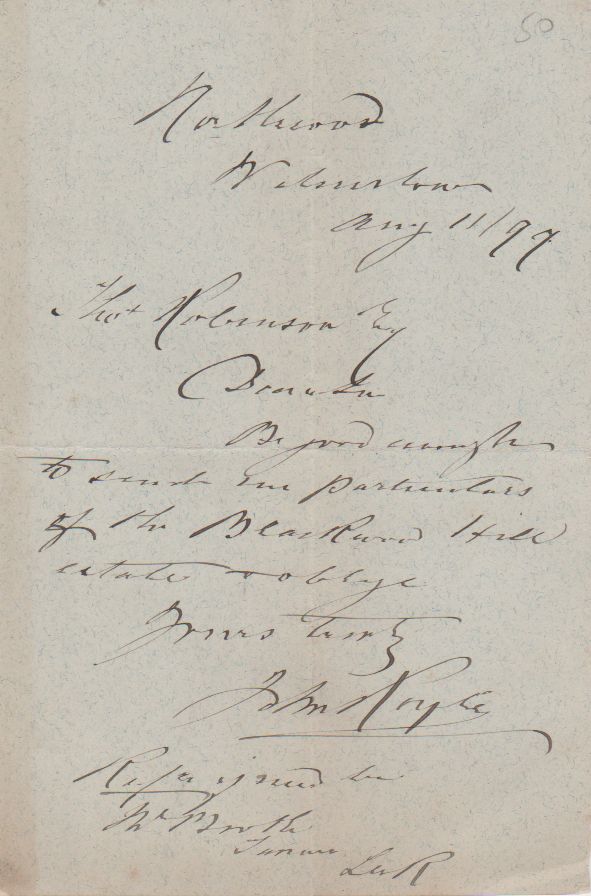 50
Northwood
Wilmslow
Aug 11/97
Thos Robinson Esq
Dear Sir
Be good enough
to send me particulars
of the Blackwood Hill
estate & oblige
Yours truly
John Royle
Mr Booth
Leek